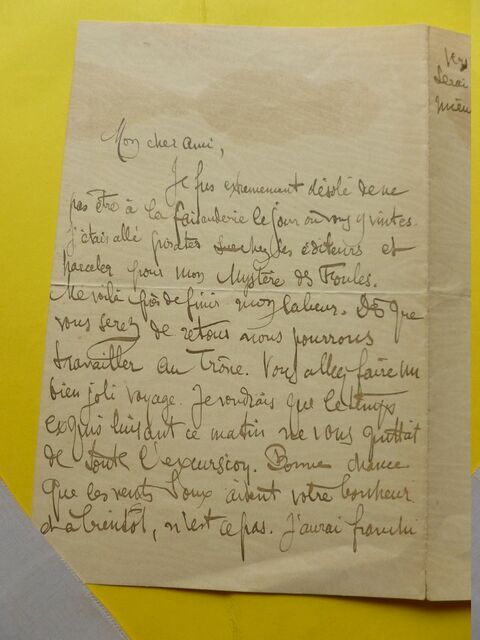 Mon cher Ami,
Je fus extremement désolé de ne
pas être à la faisanderie le jour où vous y vintes.
j'étais allé chez des éditeurs et
pour mon Mystère des Foules.
Me voilà près de finir mon labeur. Dès que
vous serez de retour nous pourrons
travailler au Trône. Vous allez faire un
bien joli voyage. Je voudrais que le temps
exquis luisant ce matin ne vous quittat
de toute l'excursion. Bonne chance
que les vents doux aident votre bonheur
et à bientôt, n'est ce pas. J'aurai franchi
serai